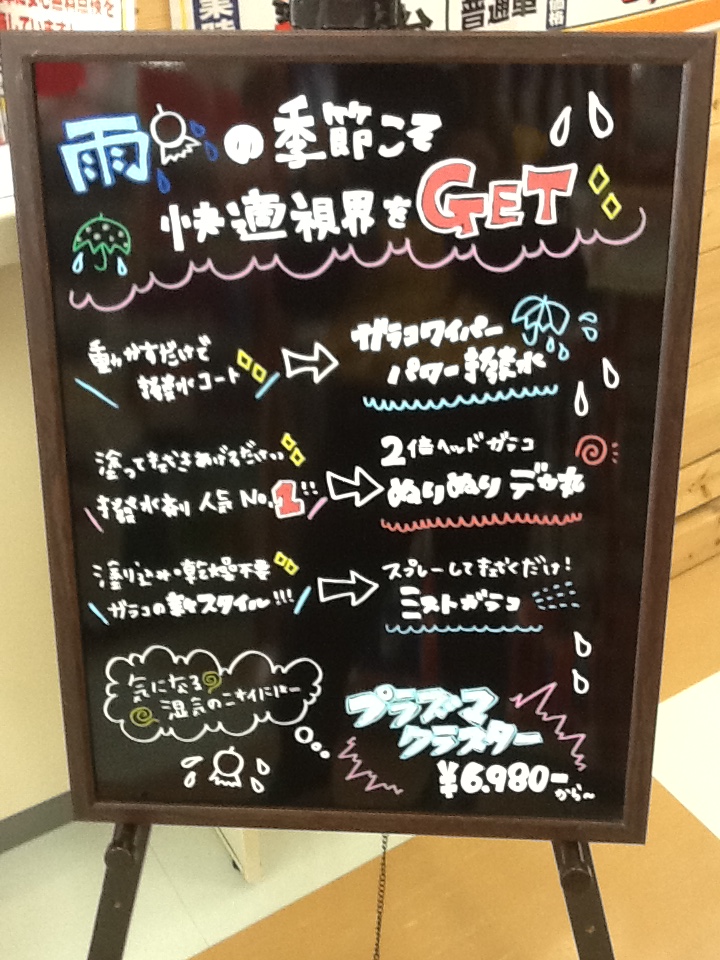 雨の季節こそ
快適視界をGET
動かすだけで
撥水コート
ガラコワイパー
パワー撥水
塗ってふきあげるだけ!!
撥水剤 人気No.1!!
2倍ヘッドガラコ
ぬりぬりデカ丸
塗り込み・乾燥不要
ガラコの楽々スタイル!!!
スプレーしてふくだけ!
ミストガラコ
気になる
湿気のニオイには…
プラズマ
クラスター
¥6.980-
から~